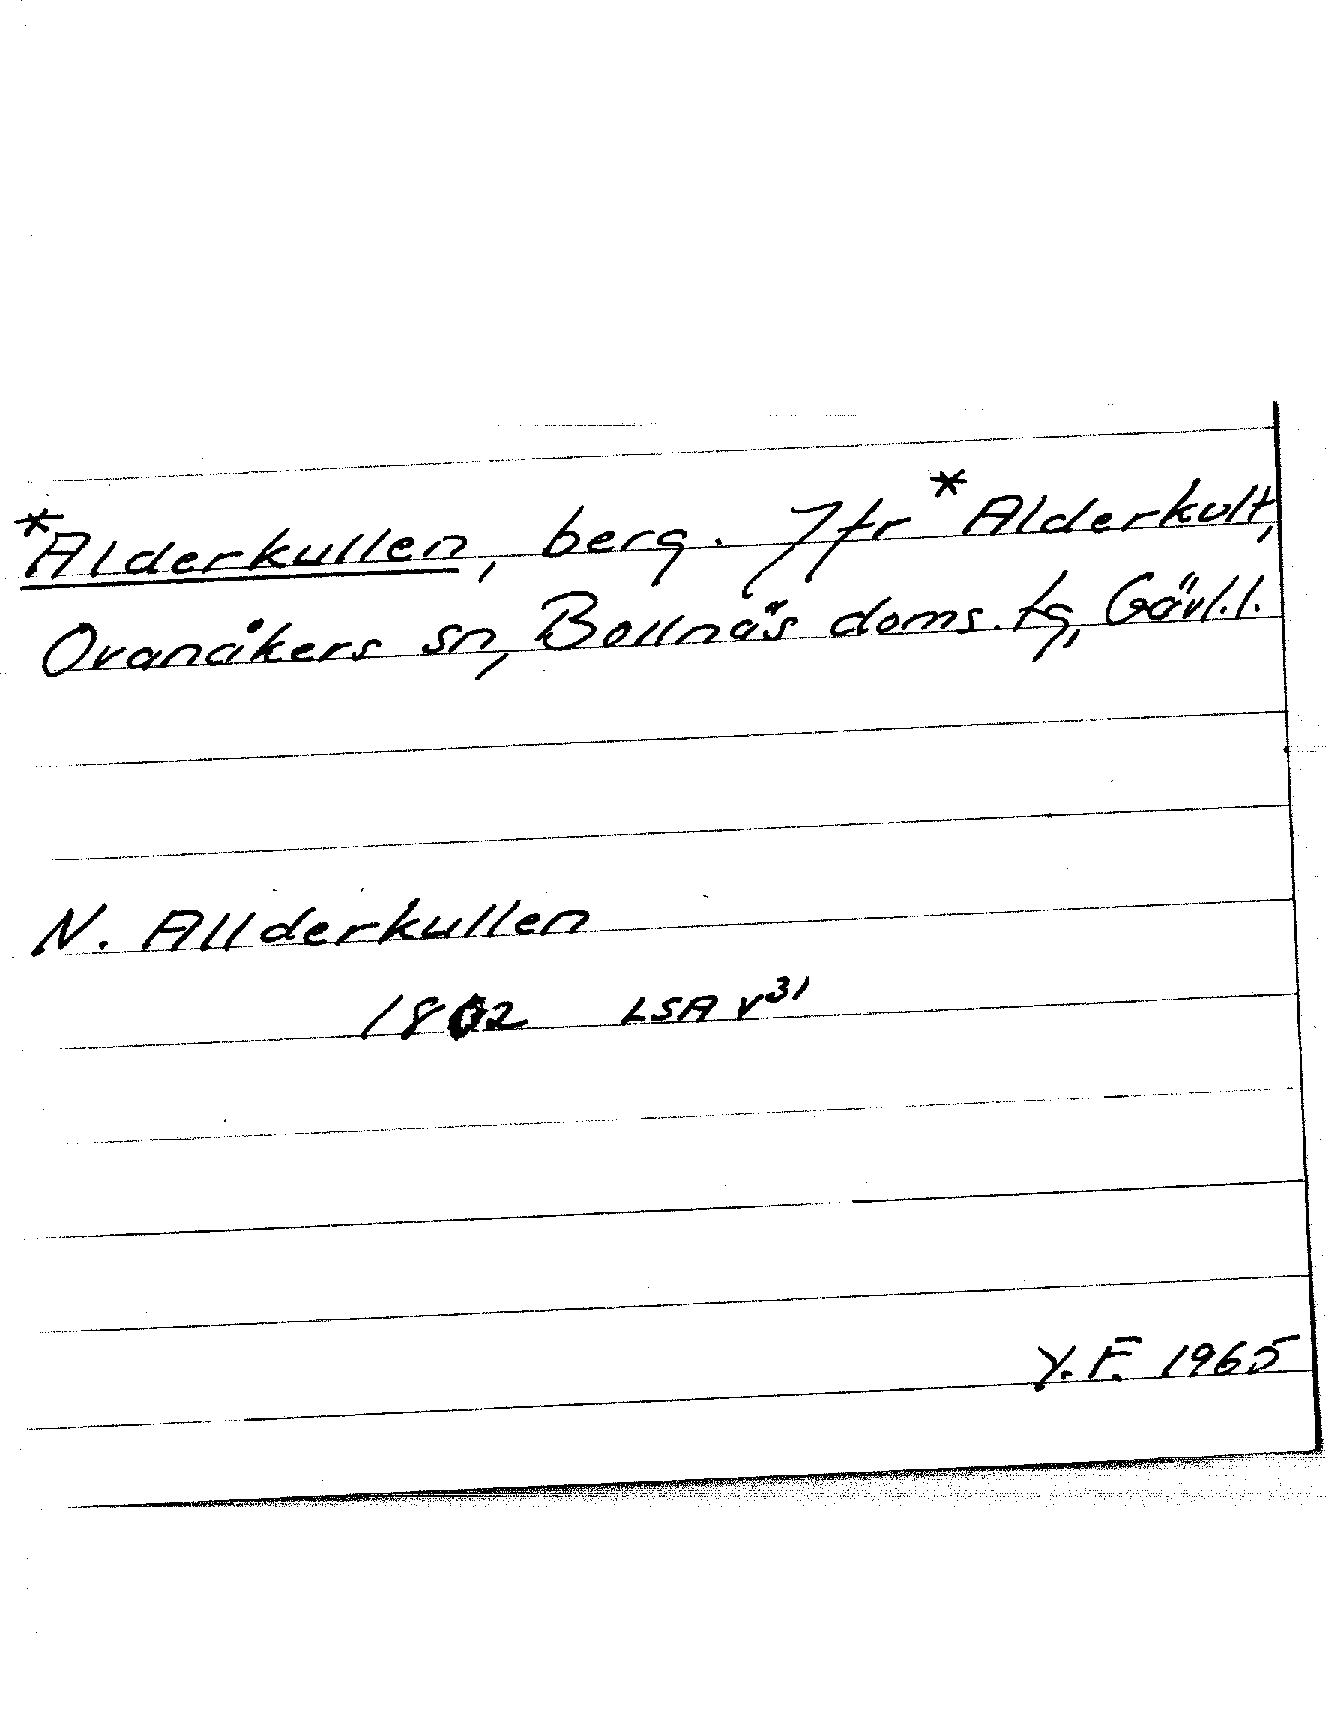 *Alderkullen, berg. Jfr *Alderkult,
Ovanåkers sn, Bollnäs doms. tg, Gävl. l.
N. Allderkullen
1802 LSA v³¹
Y.F. 1965